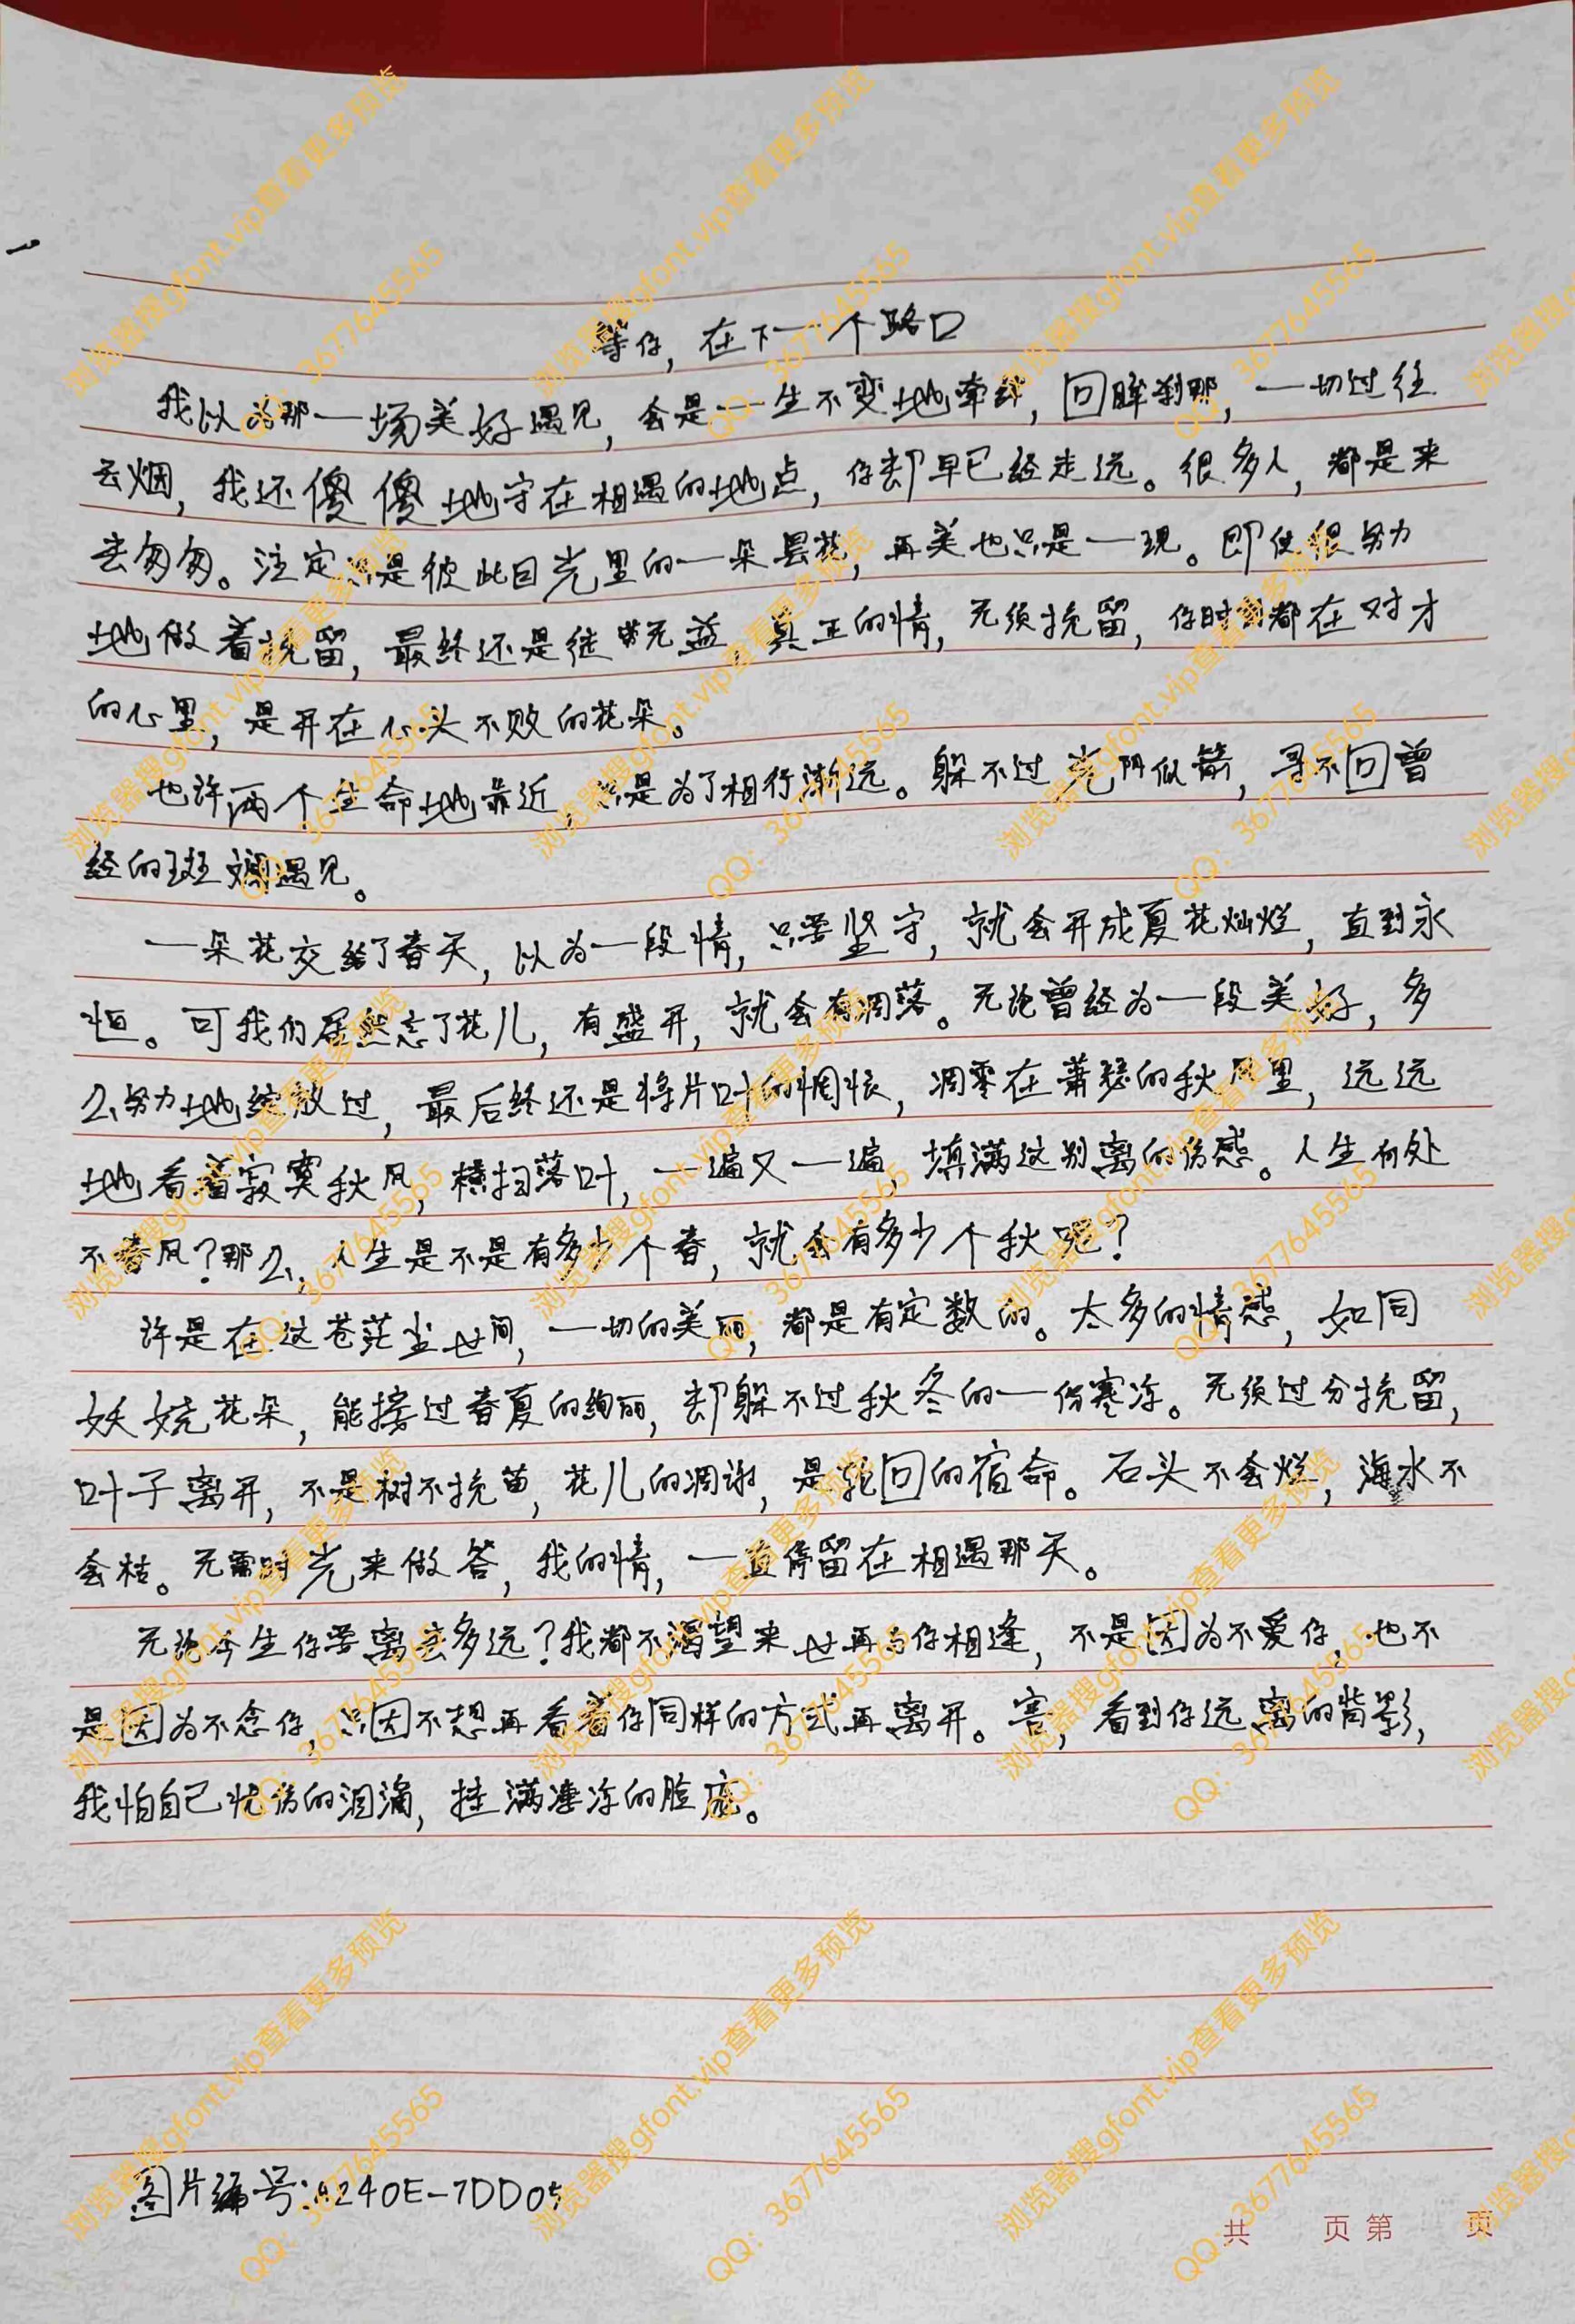 等你，在下一个路口
我以为那一场美好遇见，会是一生不变地牵绊，回眸刹那，一切过往
云烟，我还傻傻地守在相遇的地点，你却早已经走远。很多人，都是来
去匆匆。注定只是彼此目光里的一朵昙花，再美也只是一现。即使很努力
地做着挽留，最终还是徒劳无益，真正的情，无须挽留，你时刻都在对方
的心里，是开在心头不败的花朵。
也许两个生命地靠近，只是为了相行渐远。躲不过光阴似箭，寻不回曾
经的斑斓遇见。
一朵花交给了春天，以为一段情，只要坚守，就会开成夏花灿烂，直到永
恒。可我们居然忘了花儿，有盛开，就会有凋落。无论曾经为一段美好，多
么努力地绽放过，最后终还是将片叶的惆怅，凋零在萧瑟的秋风里，远远
地看着寂寞秋风，横扫落叶，一遍又一遍，填满这别离的伤感。人生何处
不春风？那么，人生是不是有多少个春，就会有多少个秋呢？
许是在这苍茫尘世间，一切的美丽，都是有定数的。太多的情感，如同
妖娆花朵，能接过春夏的绚丽，却躲不过秋冬的一份寒冻。无须过分挽留，
叶子离开，不是树不挽留，花儿的凋谢，是轮回的宿命。石头不会烂，海水不
会枯。无需时光来做答，我的情，一直停留在相遇那天。
无论今生你要离去多远？我都不渴望来世再与你相逢，不是因为不爱你，也不
是因为不念你，只因不想再看着你同样的方式再离开。害，看到你远离的背影，
我怕自己忧伤的泪滴，挂满凄冻的脸庞。
图片编号:9240E-7DD05
共 页 第 页
浏览器搜gfont.vip查看更多预览
QQ：3677645565